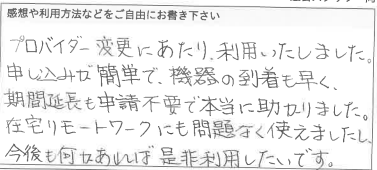 感想や利用方法などをご自由にお書き下さい
プロバイダー変更にあたり、利用いたしました。
申し込みが簡単で、機器の到着も早く、
期間延長も申請不要で本当に助かりました。
在宅リモートワークにも問題なく使えましたし、
今後も何かあれば是非利用したいです。